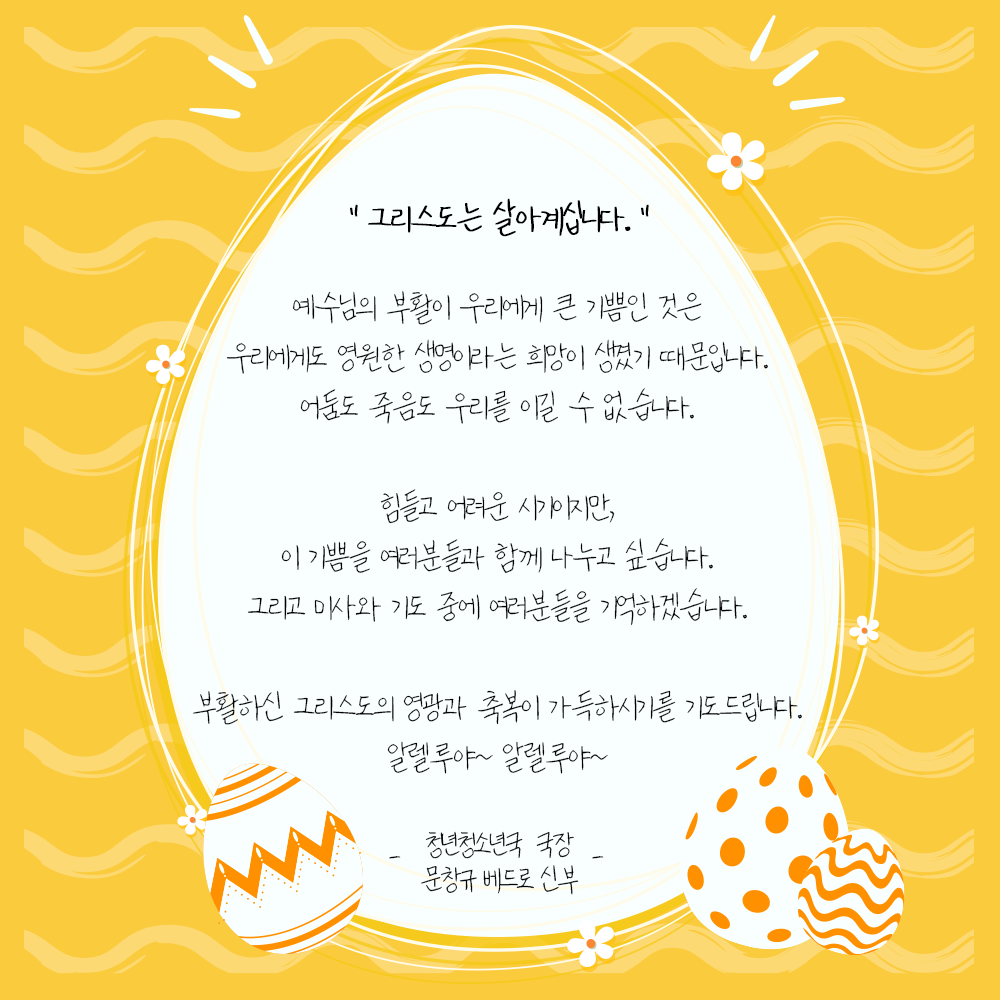 " 그리스도는 살아계십니다. "
예수님의 부활이 우리에게 큰 기쁨인 것은
우리에게도 영원한 생명이라는 희망이 생겼기 때문입니다.
어둠도 죽음도 우리를 이길 수 없습니다.
힘들고 어려운 시기이지만,
이 기쁨을 여러분들과 함께 나누고 싶습니다.
그리고 미사와 기도 중에 여러분들을 기억하겠습니다.
부활하신 그리스도의 영광과 축복이 가득하시기를 기도드립니다.
알렐루야~ 알렐루야~
- 청년청소년국 국장 -
문창규 베드로 신부